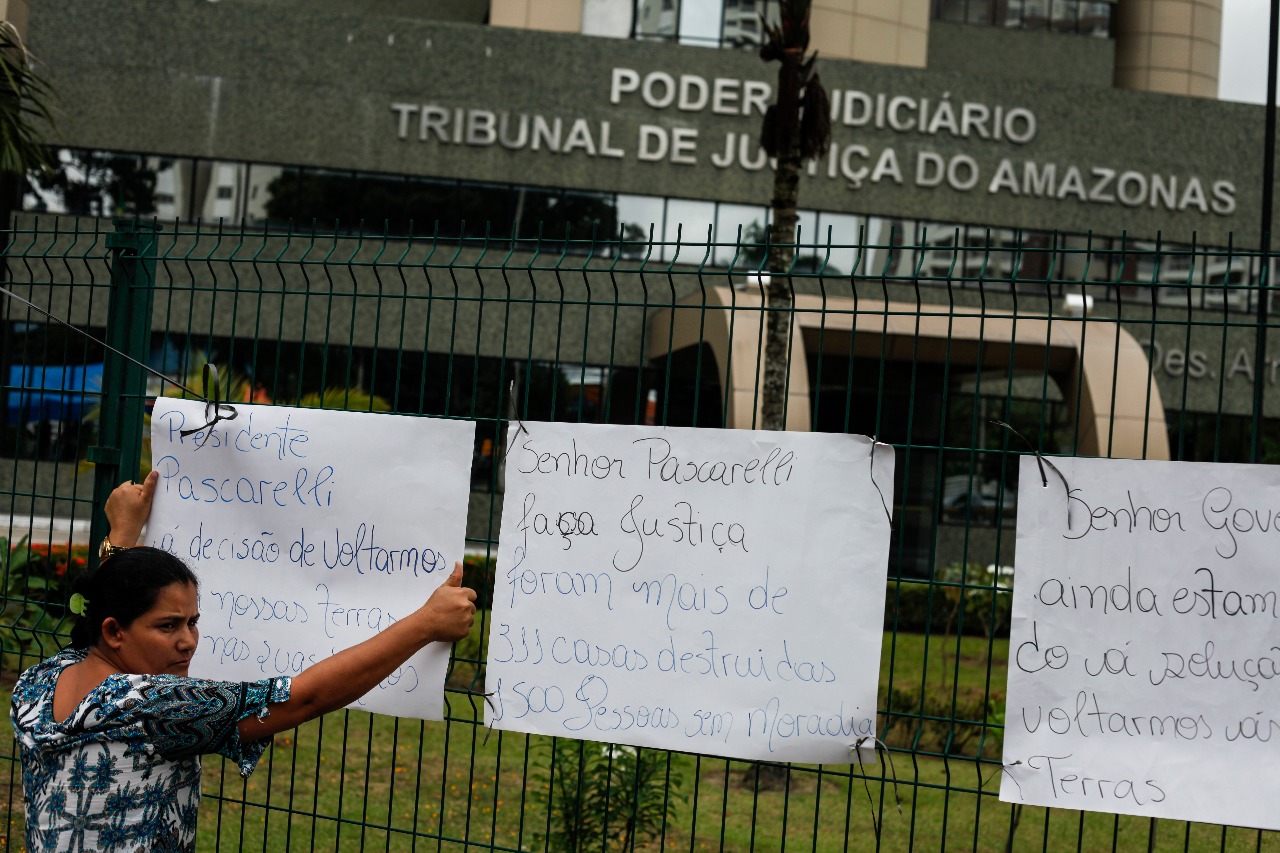 PODER JUDICIÁRIO
TRIBUNAL DE JUSTIÇA DO AMAZONAS
Des. Ar
Presidente
Pascarelli
á decisão de voltarmos
nossas Terras
nas suas
Senhor Pascarelli
faça Justiça
foram mais de
311 casas destruidas
1500 Pessoas sem Moradia
Senhor Gove
ainda estam
do vá soluçã
voltarmos vás
Terras